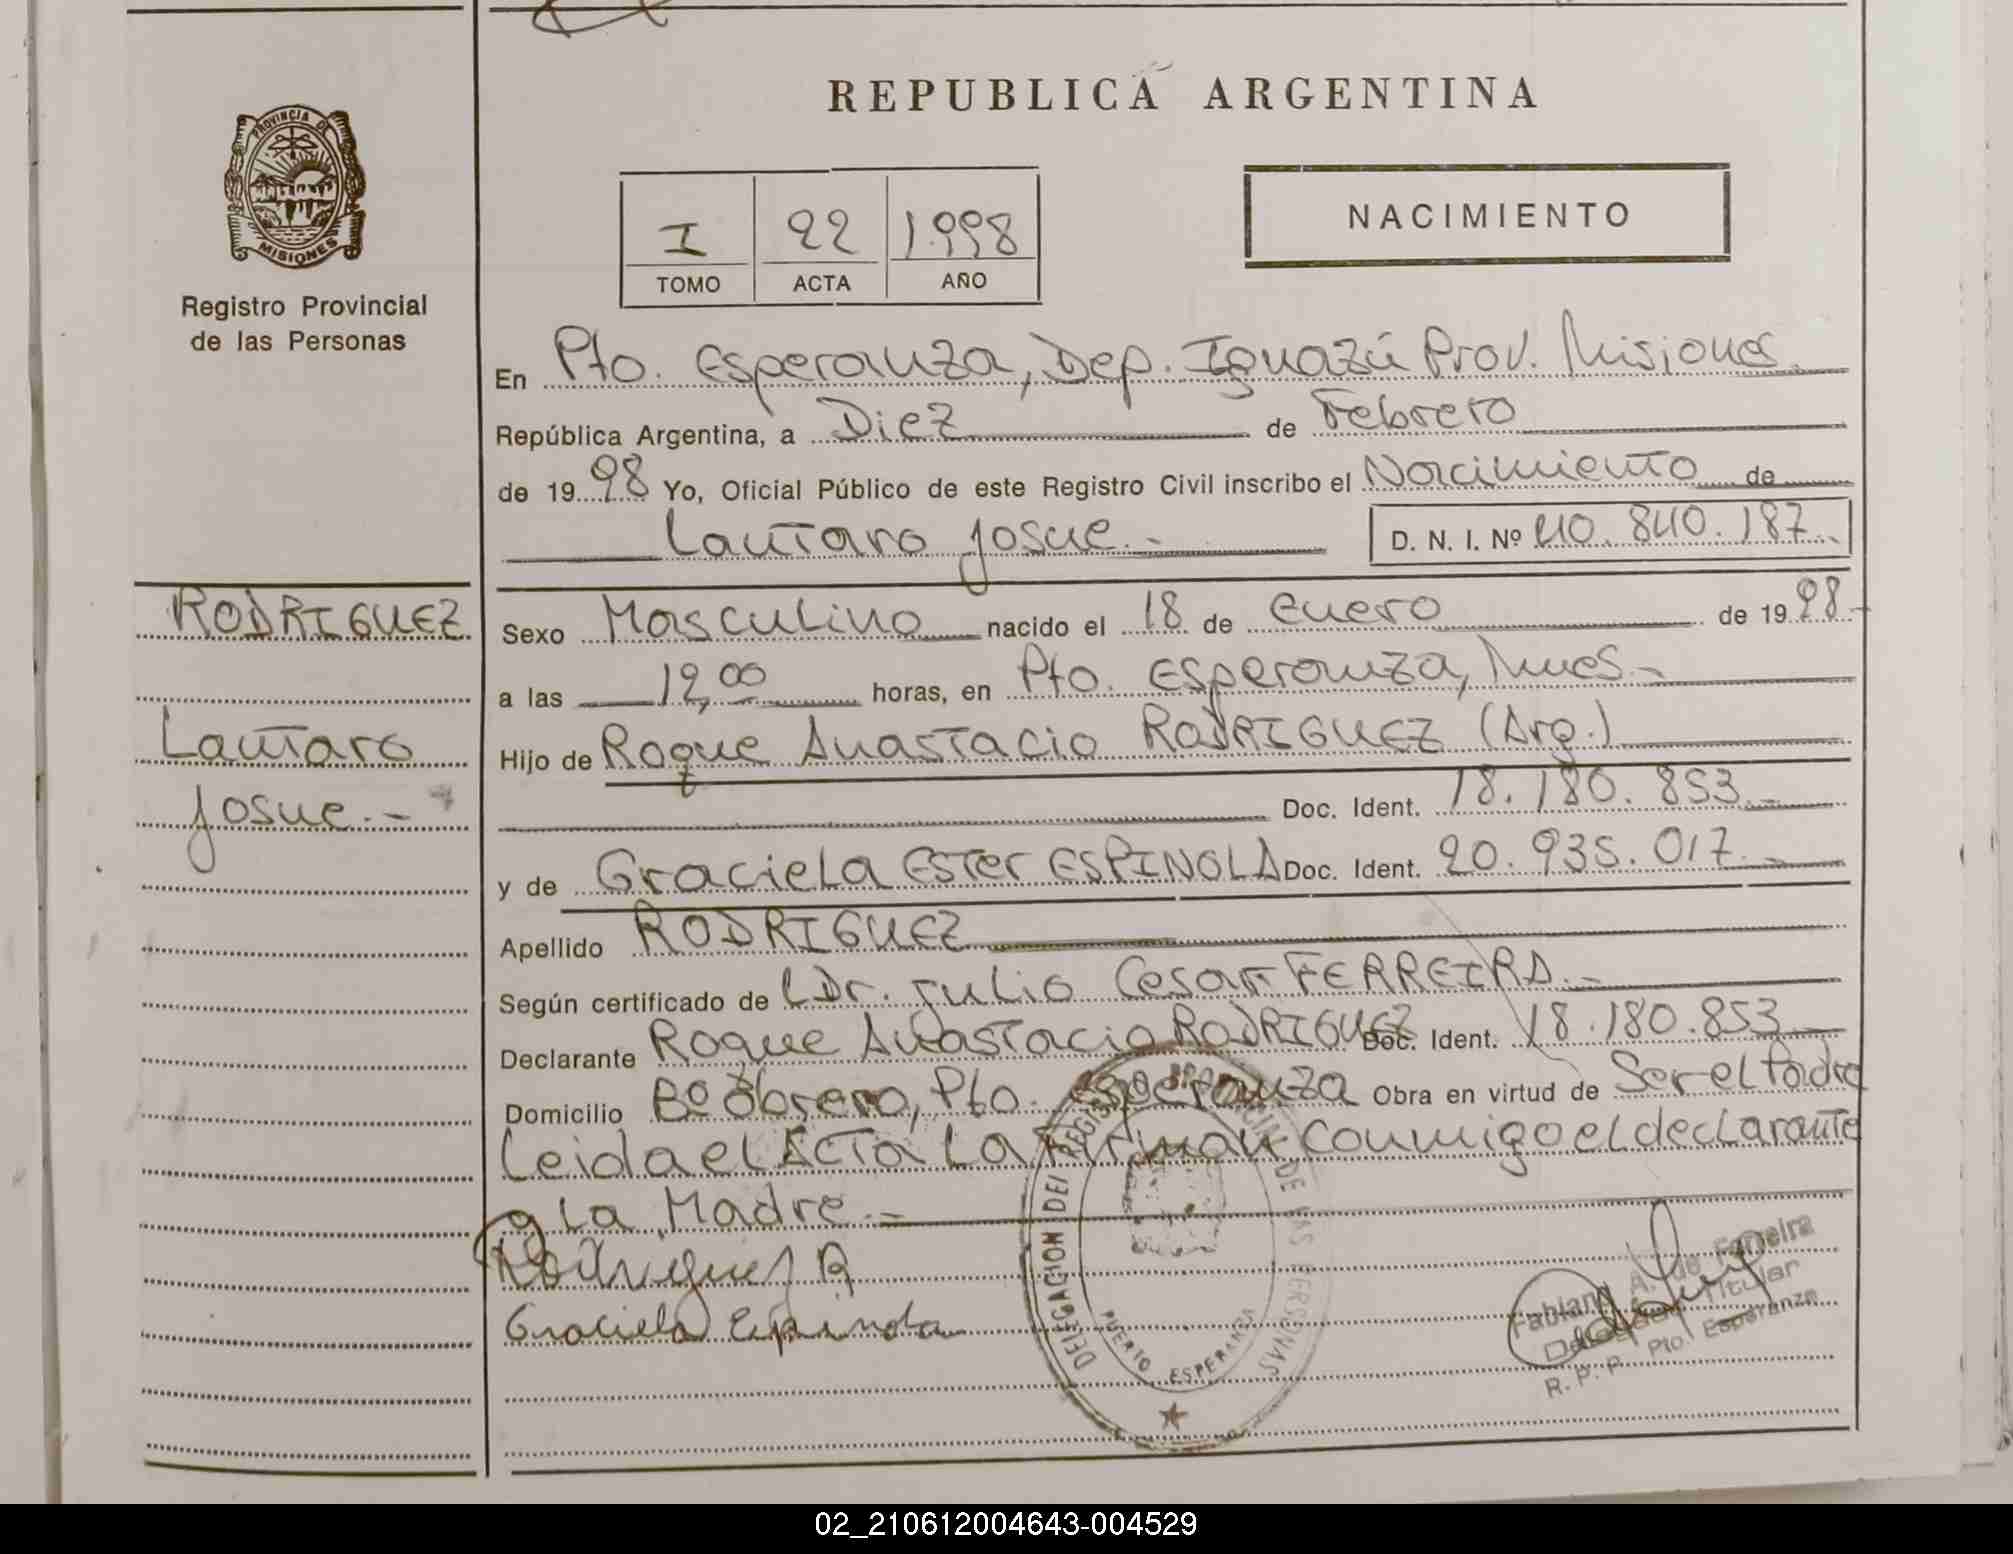 REPUBLICA ARGENTINA
PROVINCIA DE
MISIONES
Registro Provincial
de las Personas
I 22 1.998
TOMO ACTA AÑO
NACIMIENTO
En Pto. Esperanza, Dep. Iguazú Prov. Misiones.
República Argentina, a Diez de Febrero
de 1998 Yo, Oficial Público de este Registro Civil inscribo el Nacimiento de
Lautaro Josue.-
D. N. I. Nº 40.840.187.-
RODRIGUEZ
Lautaro
Josue.-
Sexo Masculino nacido el 18 de enero de 1998.-
a las 12,00 horas, en Pto. Esperanza, Mnes.-
Hijo de Roque Anastacio RODRIGUEZ (Arg.)
Doc. Ident. 18.180.853.-
y de Graciela Ester ESPINOLA Doc. Ident. 20.935.017.-
Apellido RODRIGUEZ
Según certificado de Dr. Julio Cesar FERREIRA.-
Declarante Roque Anastacio RODRIGUEZ Doc. Ident. 18.180.853.-
Domicilio Bº Obrero, Pto. Esperanza Obra en virtud de Ser el Padre
Leida el Acta La Firman Conmigo el declarante
y La Madre.-
Rodriguez R
Graciela Espinola
DELEGACION DEL REGISTRO PROVINCIAL DE LAS PERSONAS
PUERTO ESPERANZA
Fabiana A. de Ferreira
Delegada Titular
R. P. P. Pto. Esperanza
02_210612004643-004529